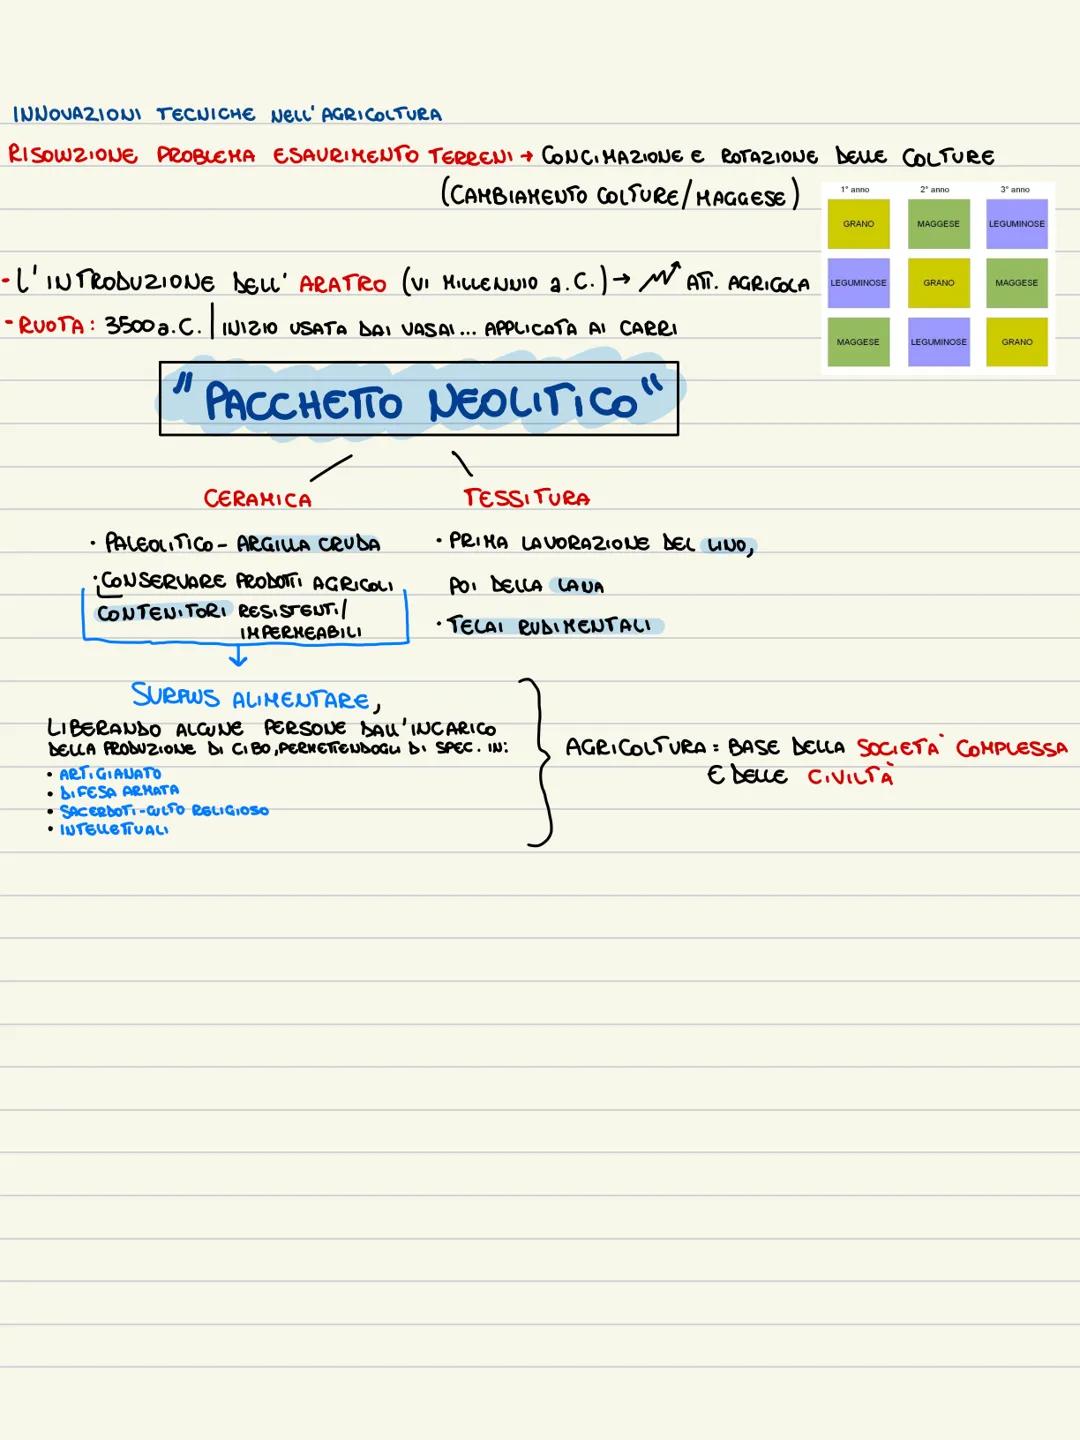 INNOVAZIONI TECNICHE NELL'AGRICOLTURA
RISOLUZIONE PROBLEMA ESAURIMENTO TERRENI → CONCIMAZIONE E ROTAZIONE DELLE COLTURE
(CAMBIAMENTO COLTURE/MAGGESE)
1° anno 2° anno 3° anno
GRANO MAGGESE LEGUMINOSE
LEGUMINOSE GRANO MAGGESE
MAGGESE LEGUMINOSE GRANO
- L'INTRODUZIONE DELL'ARATRO (VI MILLENNIO a.C.) → ATT. AGRICOLA
- RUOTA: 3500 a.C. | INIZIO USATA DAI VASAI... APPLICATA AI CARRI
"PACCHETTO NEOLITICO"
CERAMICA
• PALEOLITICO - ARGILLA CRUDA
• CONSERVARE PRODOTTI AGRICOLI
CONTENITORI RESISTENTI/
IMPERMEABILI
TESSITURA
• PRIMA LAVORAZIONE DEL LINO,
POI DELLA LANA
• TELAI RUDIMENTALI
SURPLUS ALIMENTARE,
LIBERANDO ALCUNE PERSONE DALL'INCARICO
DELLA PRODUZIONE DI CIBO, PERMETTENDOGLI DI SPEC. IN:
• ARTIGIANATO
• DIFESA ARMATA
• SACERDOTI - CULTO RELIGIOSO
• INTELLETTUALI
AGRICOLTURA: BASE DELLA SOCIETÀ COMPLESSA
E DELLE CIVILTÀ